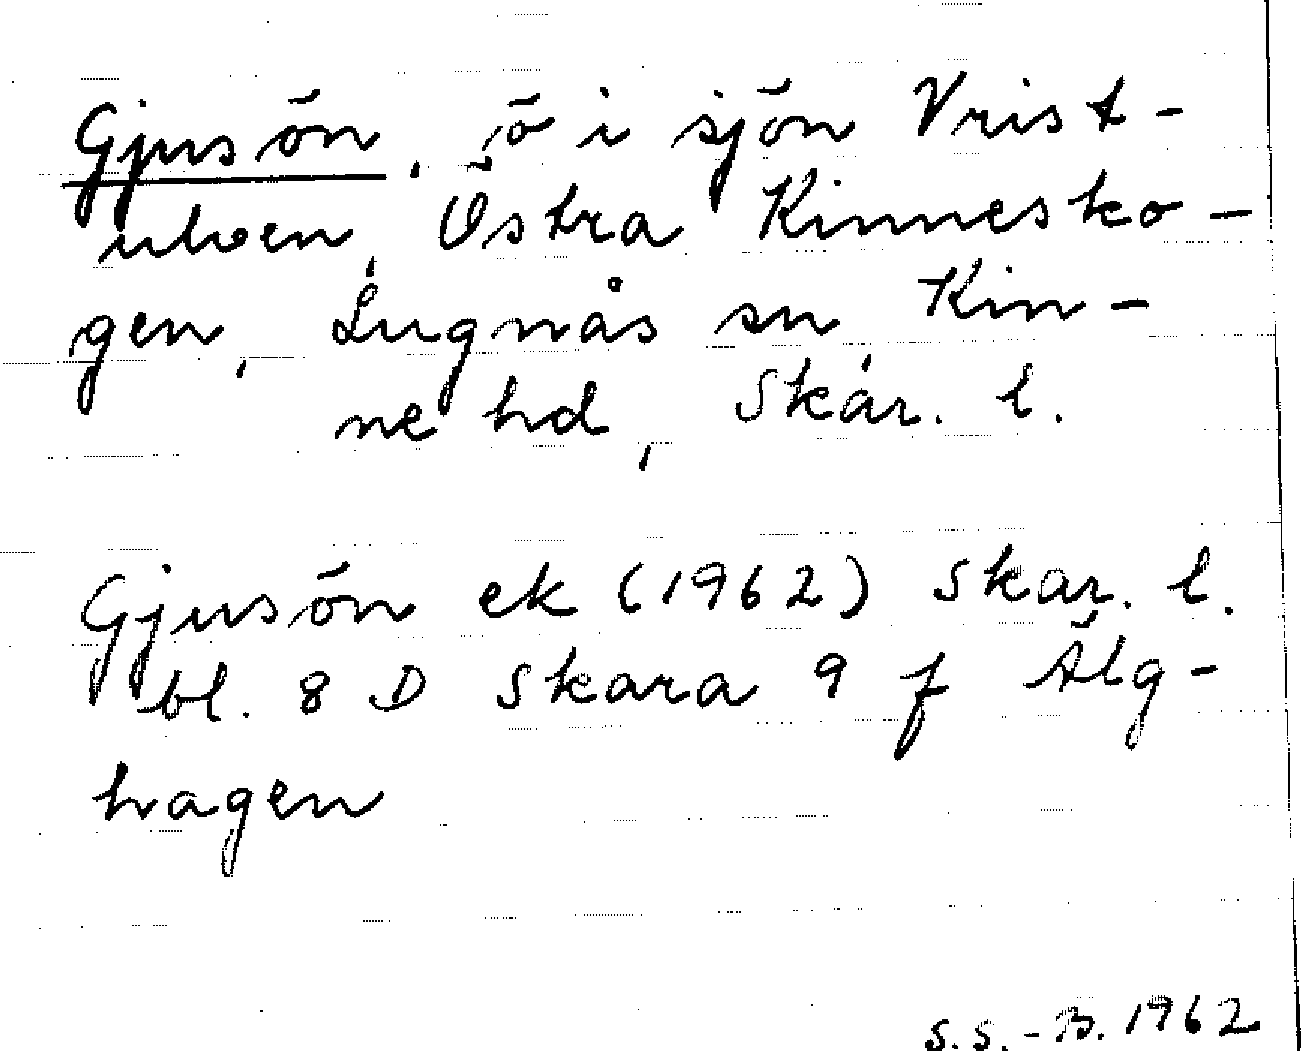 Gjusön, ö i sjön Vrist-
ulven, Östra Kinnesko-
gen, Lugnås sn, Kin-
ne hd, Skar. l.
Gjusön ek (1962) Skar. l.
bl. 8 D Skara 9 f Älg-
hagen
S.S.-B. 1962